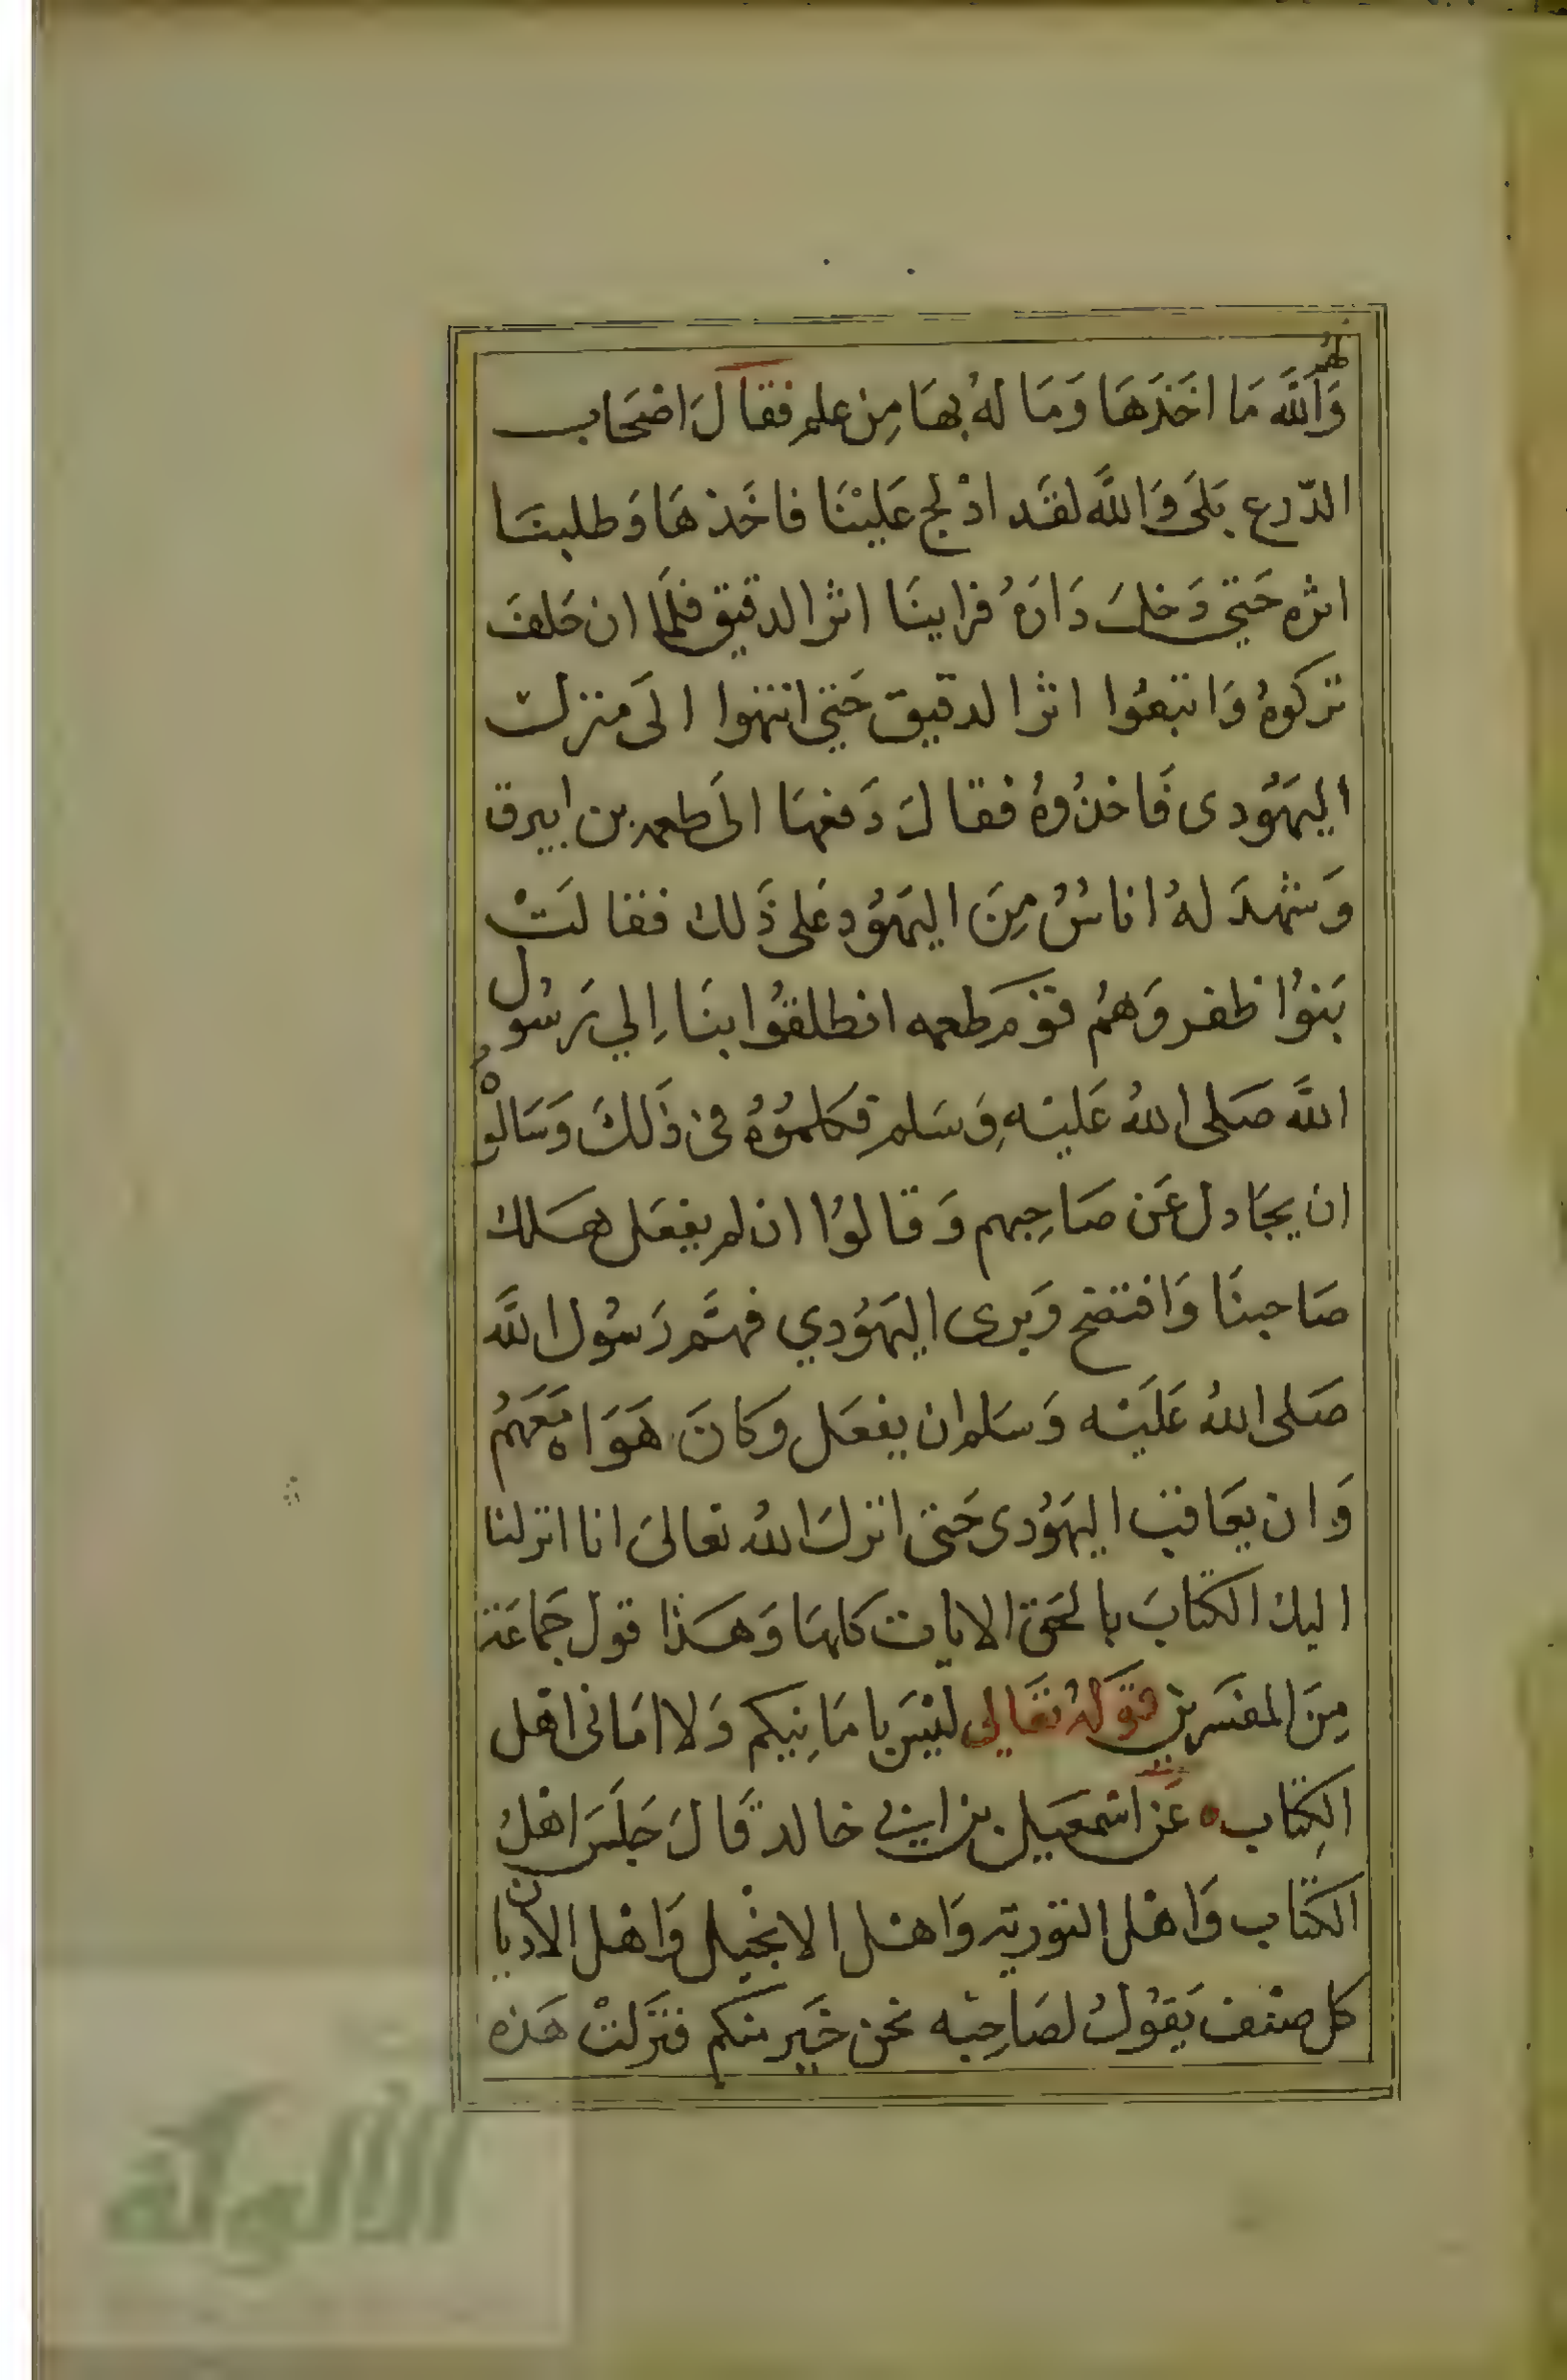 لهم
وَاللَّه مَا اخَذهَا وَمَا لهُ بهَا مِن علم فقالَ اصْحَاب
الدّرع بَلَى وَاللَّه لقَد ادْلج عَليْنَا فاخَذهَا وَطلبنَا
اثره حَتى دَخلَ دَارَهُ فراينَا اثر الدقيق فلمَّا ان حَلفَ
تركوهُ وَاتبعُوا اثر الدقيق حَتى انتهوا الَى منزل
اليهُودى فَاخذُوهُ فقالَ دَفعهَا الَى طعمه بن ابيرق
وَشهدَ لهُ اناسُ مِنَ اليهُود عَلى ذَلك فقالَتْ
بَنوُا ظفر وَهمُ قوْم طعمه انطلقُوا بنَا اِلي رَسُول
اللَّه صَلى اللهُ عَليْهِ وَسَلم فكلموُهُ فى ذَلكَ وَسَالوْهُ
ان يجَادل عَن صَاحِبهم وَقالوُا ان لم يفعَل هَلك
صَاحبنَا وَافتضح وَبرى اليهُودي فهَمَّ رَسُول اللَّه
صَلى اللهُ عَلَيْه وَسَلم ان يفعَل وَكانَ هَوَاه مَعَهمُ
وَان يعَاقبَ اليهُودى حَتى انزلَ اللهُ تعالىَ انا انزلنا
اليك الكتَابَ بالحَق الايات كلهَا وَهَذا قول جَماعَة
مِنَ المفسَرين قوَلهُ تعَالي ليْسَ بامَانِيكم وَلا امَانى اهْل
الكِتاب ه عَن اسْمعيل بن ابي خالد قالَ جَلسَ اهْلُ
الكتَاب وَاهْل التوْرية وَاهْل الانجْيل وَاهْل الاديان
كل صنْف يَقوُلُ لصَاحِبه نحن خَير منكم فنَزلتْ هَذه
الألوكة